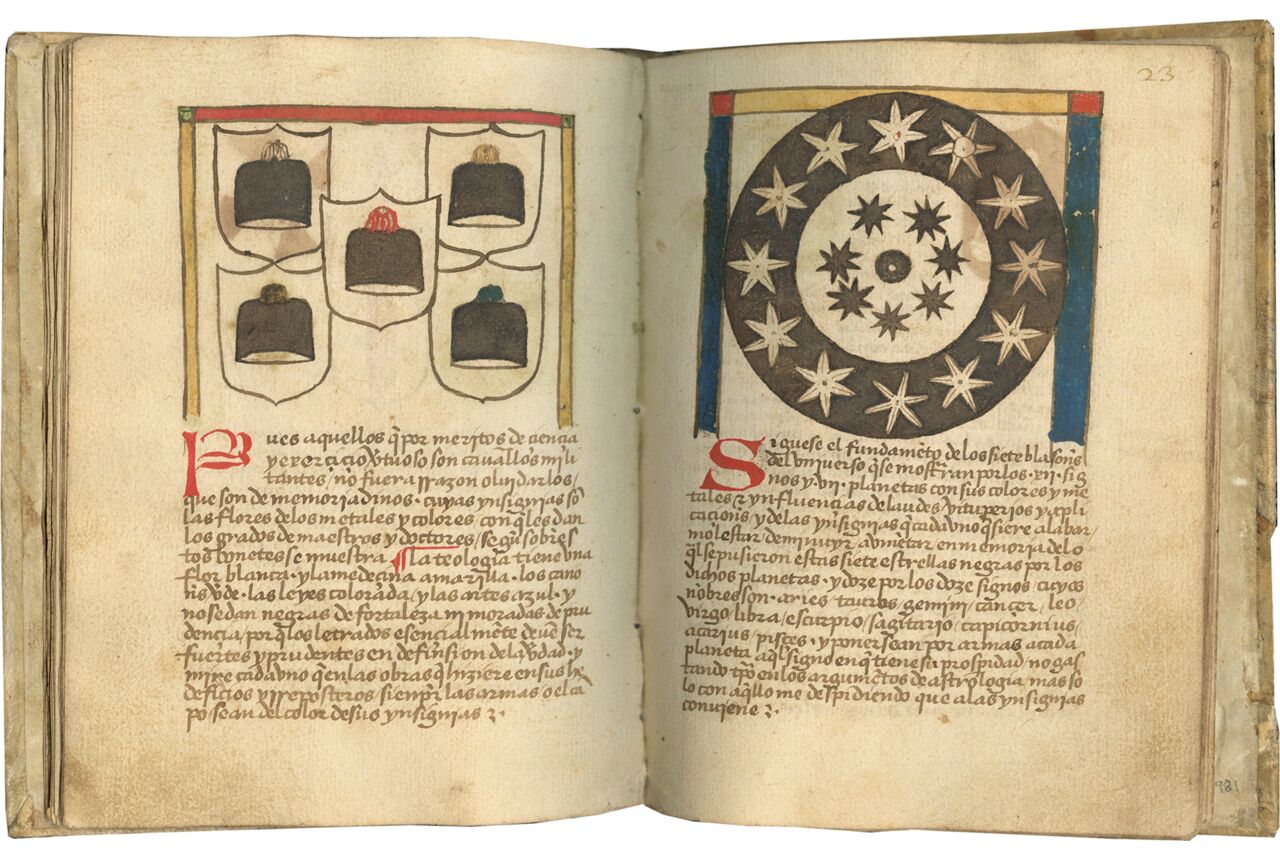 Pues aquellos q̃ por meritos de ciencia
y exercicio v̓tuoso son cavall̓os mili
tantes / nõ fuera rrazon olvidarlos /
que son de memoria dinos · cuyas ynsignias sõ
las flores de los metales y colores con q̃ les dan
los grados de maestros y doctores / segũ sobr̃es
tos bonetes se muestra ¶ la teologia tiene vna
flor blanca · y la medeçina amarilla · los cano
nes v̓de · las leyes colorada / y las artes azul · y
no se dan negras de fortaleza ni moradas de pru
dencia / por q̃ los letrados esencial mẽte deuẽ ser
fuertes y prudentes en defension de la v̓dad · y
mire cada vno q̃ en las obras q̃ hiziere en sus
deficios y rreposteros sienpr̃ las armas o el cã
po sean del color de sus ynsignias
23
Siguese el fundamẽto de los siete blasones
del vniverso q̃ se mostraran por los · xii · sig
nos y · vii · planetas con sus colores y me
tales & ynfluencias de laudes / vituperios y apli
caciones / y de las ynsignias q̃ cada vno q̃siere alabar /
molestar / deminuyr / avmẽtar / en memoria de lo
q̃l se pusieron estas siete estrellas negras por los
dichos planetas · y doze por los doze signos cuyos
nõbres son · aries / taurus / gemini / cançer / leo /
virgo / libra / escurpio / sagitario / capicornius /
acarius / pisçes · y poner se an por armas a cada
planeta aq̃l signo en q̃ tiene su prosp̱idad no gas
tando tp̃o en los argumẽtos de astrologia / mas so
lo con aq̃llo me despidiendo que a las ynsignias
conviene
981